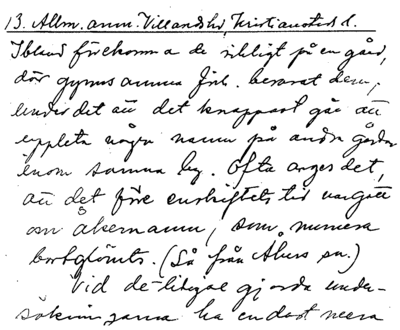 13. Allm. anm. Villands hd, Kristianstads l.
Ibland förekomma de rikligt på en gård,
där gynnsamma förh. bevarat dem,
under det att det knappast går att
uppleta några namn på andra gårdar
inom samma by. Ofta anges det,
att det före enskiftets tid var gott
om åkernamn, som numera
bortglömts. (Så från Åhus sn.)
Vid de gjorda under-
sökningarna ha endast